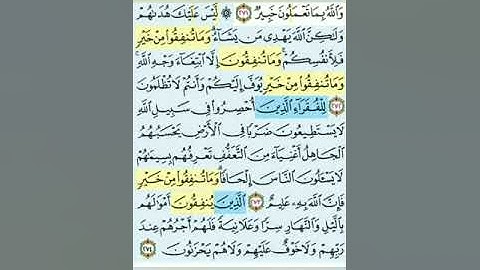 وَاللَّهُ بِمَا تَعْمَلُونَ خَبِيرٌ ٢٧١ ۞ لَّيْسَ عَلَيْكَ هُدَىٰهُمْ
وَلَٰكِنَّ اللَّهَ يَهْدِي مَن يَشَاءُ ۗ وَمَا تُنفِقُوا مِنْ خَيْرٍ
فَلِأَنفُسِكُمْ ۚ وَمَا تُنفِقُونَ إِلَّا ابْتِغَاءَ وَجْهِ اللَّهِ ۚ
وَمَا تُنفِقُوا مِنْ خَيْرٍ يُوَفَّ إِلَيْكُمْ وَأَنتُمْ لَا تُظْلَمُونَ
٢٧٢ لِلْفُقَرَاءِ الَّذِينَ أُحْصِرُوا فِي سَبِيلِ اللَّهِ
لَا يَسْتَطِيعُونَ ضَرْبًا فِي الْأَرْضِ يَحْسَبُهُمُ
الْجَاهِلُ أَغْنِيَاءَ مِنَ التَّعَفُّفِ تَعْرِفُهُم بِسِيمَٰهُمْ
لَا يَسْـَٔلُونَ النَّاسَ إِلْحَافًا ۗ وَمَا تُنفِقُوا مِنْ خَيْرٍ
فَإِنَّ اللَّهَ بِهِ عَلِيمٌ ٢٧٣ الَّذِينَ يُنفِقُونَ أَمْوَٰلَهُم
بِالَّيْلِ وَالنَّهَارِ سِرًّا وَعَلَانِيَةً فَلَهُمْ أَجْرُهُمْ عِندَ
رَبِّهِمْ وَلَا خَوْفٌ عَلَيْهِمْ وَلَا هُمْ يَحْزَنُونَ ٢٧٤